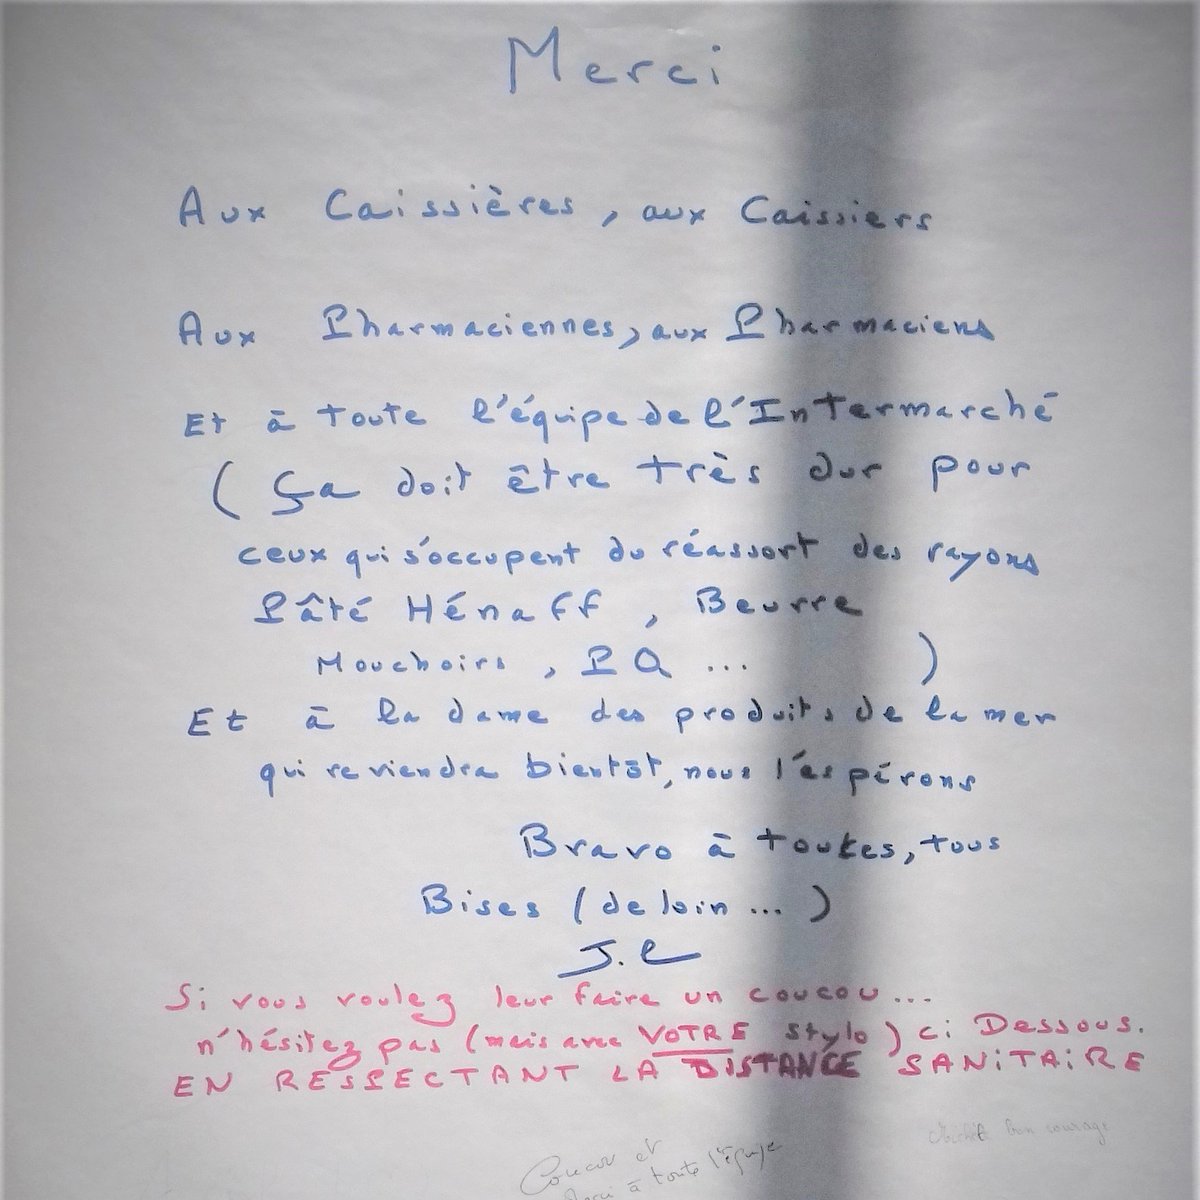 Merci
Aux Caissières, aux Caissiers
Aux Pharmaciennes, aux Pharmaciens
Et à toute l'équipe de l'Intermarché
(Ça doit être très dur pour
ceux qui s'occupent du réassort des rayons
Pâté Hénaff, Beurre
Mouchoirs, PQ ... )
Et à la dame des produits de la mer
qui reviendra bientôt, nous l'espérons
Bravo à toutes, tous
Bises (de loin ... )
J.C
Si vous voulez leur faire un coucou...
n'hésitez pas (mais avec VOTRE stylo) ci Dessous.
EN RESPECTANT LA DISTANCE SANITAIRE
bon courage
Coucou et
à toute l'équipe